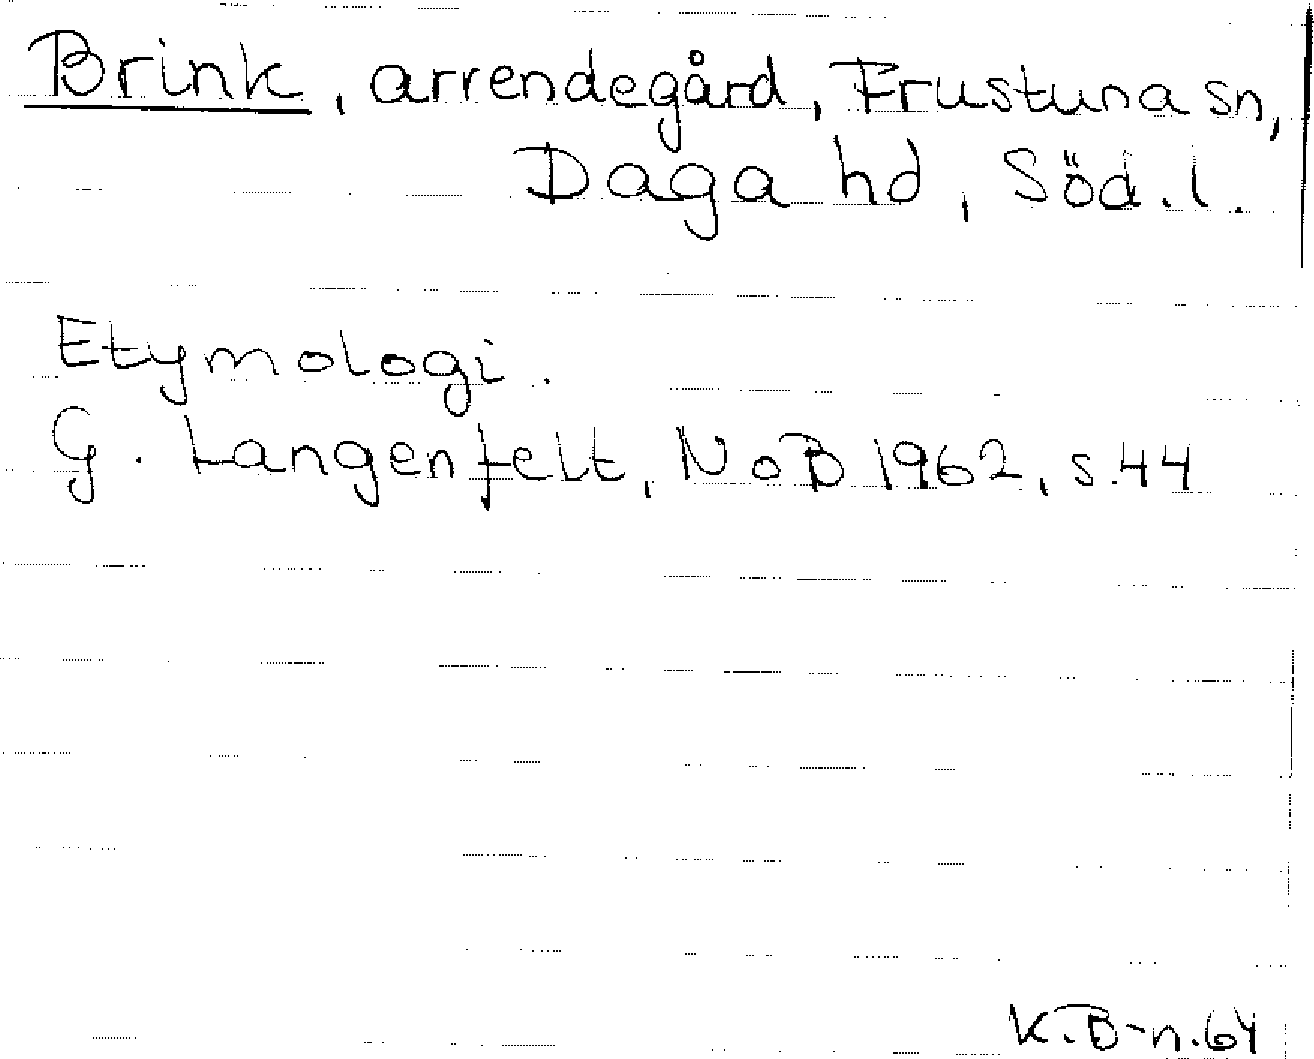 Brink, arrendegård, Frustuna sn,
Daga hd, Söd. l.
Etymologi.
G. Langenfelt, NoB 1962, s. 44
K.B-n.64